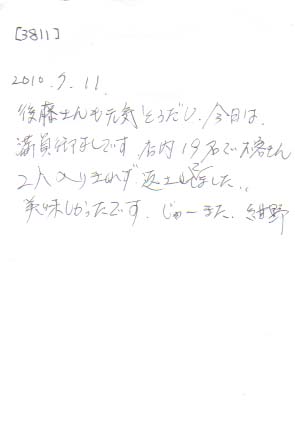 [3811]
2010.9.11.
後藤さんも元気そうだし、今日は、
満員御礼です。店内19名で お客さん
2人入りきれず
美味しかったです。じゃーまた。紺野